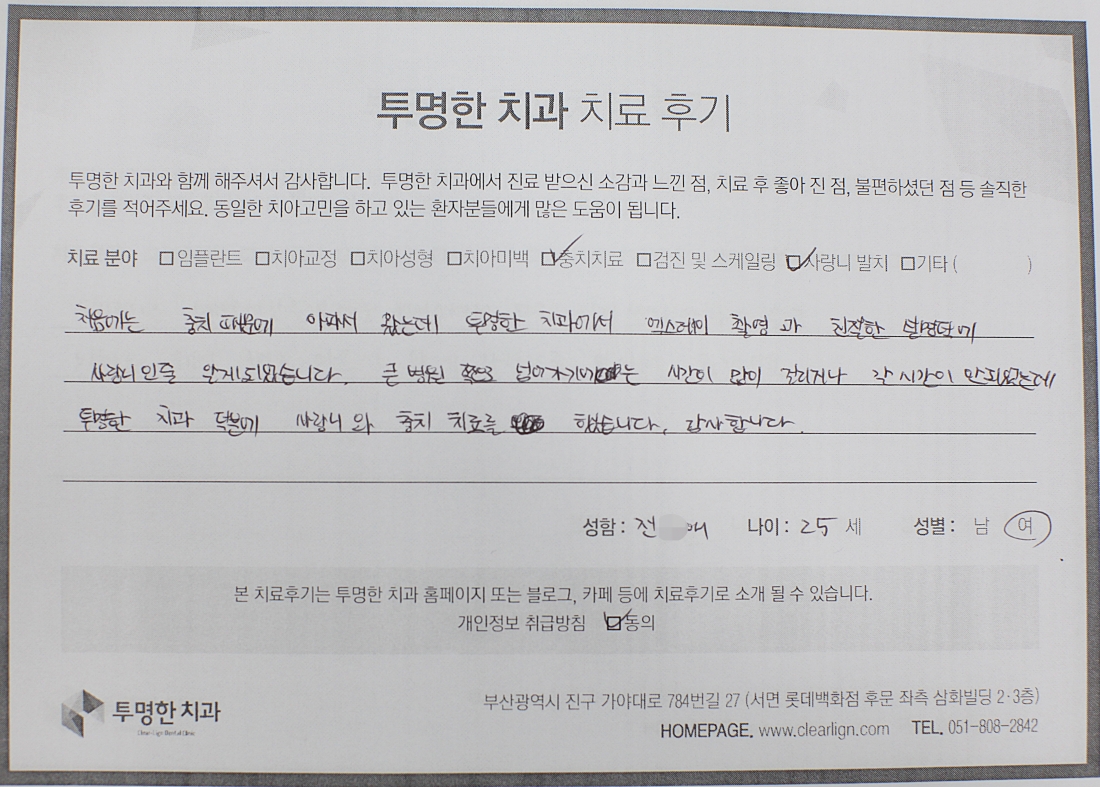 투명한 치과 치료 후기
투명한 치과와 함께 해주셔서 감사합니다. 투명한 치과에서 진료 받으신 소감과 느낀 점, 치료 후 좋아 진 점, 불편하셨던 점 등 솔직한
후기를 적어주세요. 동일한 치아고민을 하고 있는 환자분들에게 많은 도움이 됩니다.
치료 분야 □임플란트 □치아교정 □치아성형 □치아미백 ☑충치치료 □검진 및 스케일링 ☑사랑니 발치 □기타 ( )
처음에는 충치 때문에 아파서 왔는데 투명한 치과에서 엑스레이 촬영과 친절한 설명덕에
사랑니인줄 알게되었습니다. 큰 병원 넘어가기에는 시간이 많이 걸리거나 갈 시간이 안되었는데
투명한 치과 덕분에 사랑니와 충치 치료를 했습니다. 감사합니다.
성함 : 전 애 나이 : 25 세 성별 : 남 여
본 치료후기는 투명한 치과 홈페이지 또는 블로그, 카페 등에 치료후기로 소개 될 수 있습니다.
개인정보 취급방침 ☑동의
투명한 치과
부산광역시 진구 가야대로 784번길 27 (서면 롯데백화점 후문 좌측 삼화빌딩 2·3층)
HOMEPAGE. www.clearlign.com TEL. 051-808-2842